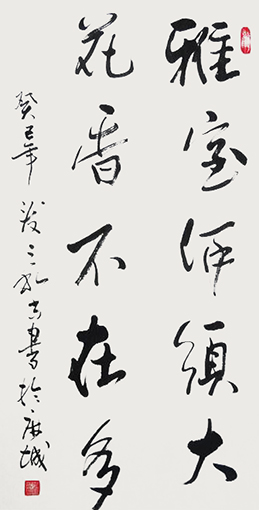 雅室何须大
花香不在多
癸巳年 书于 城